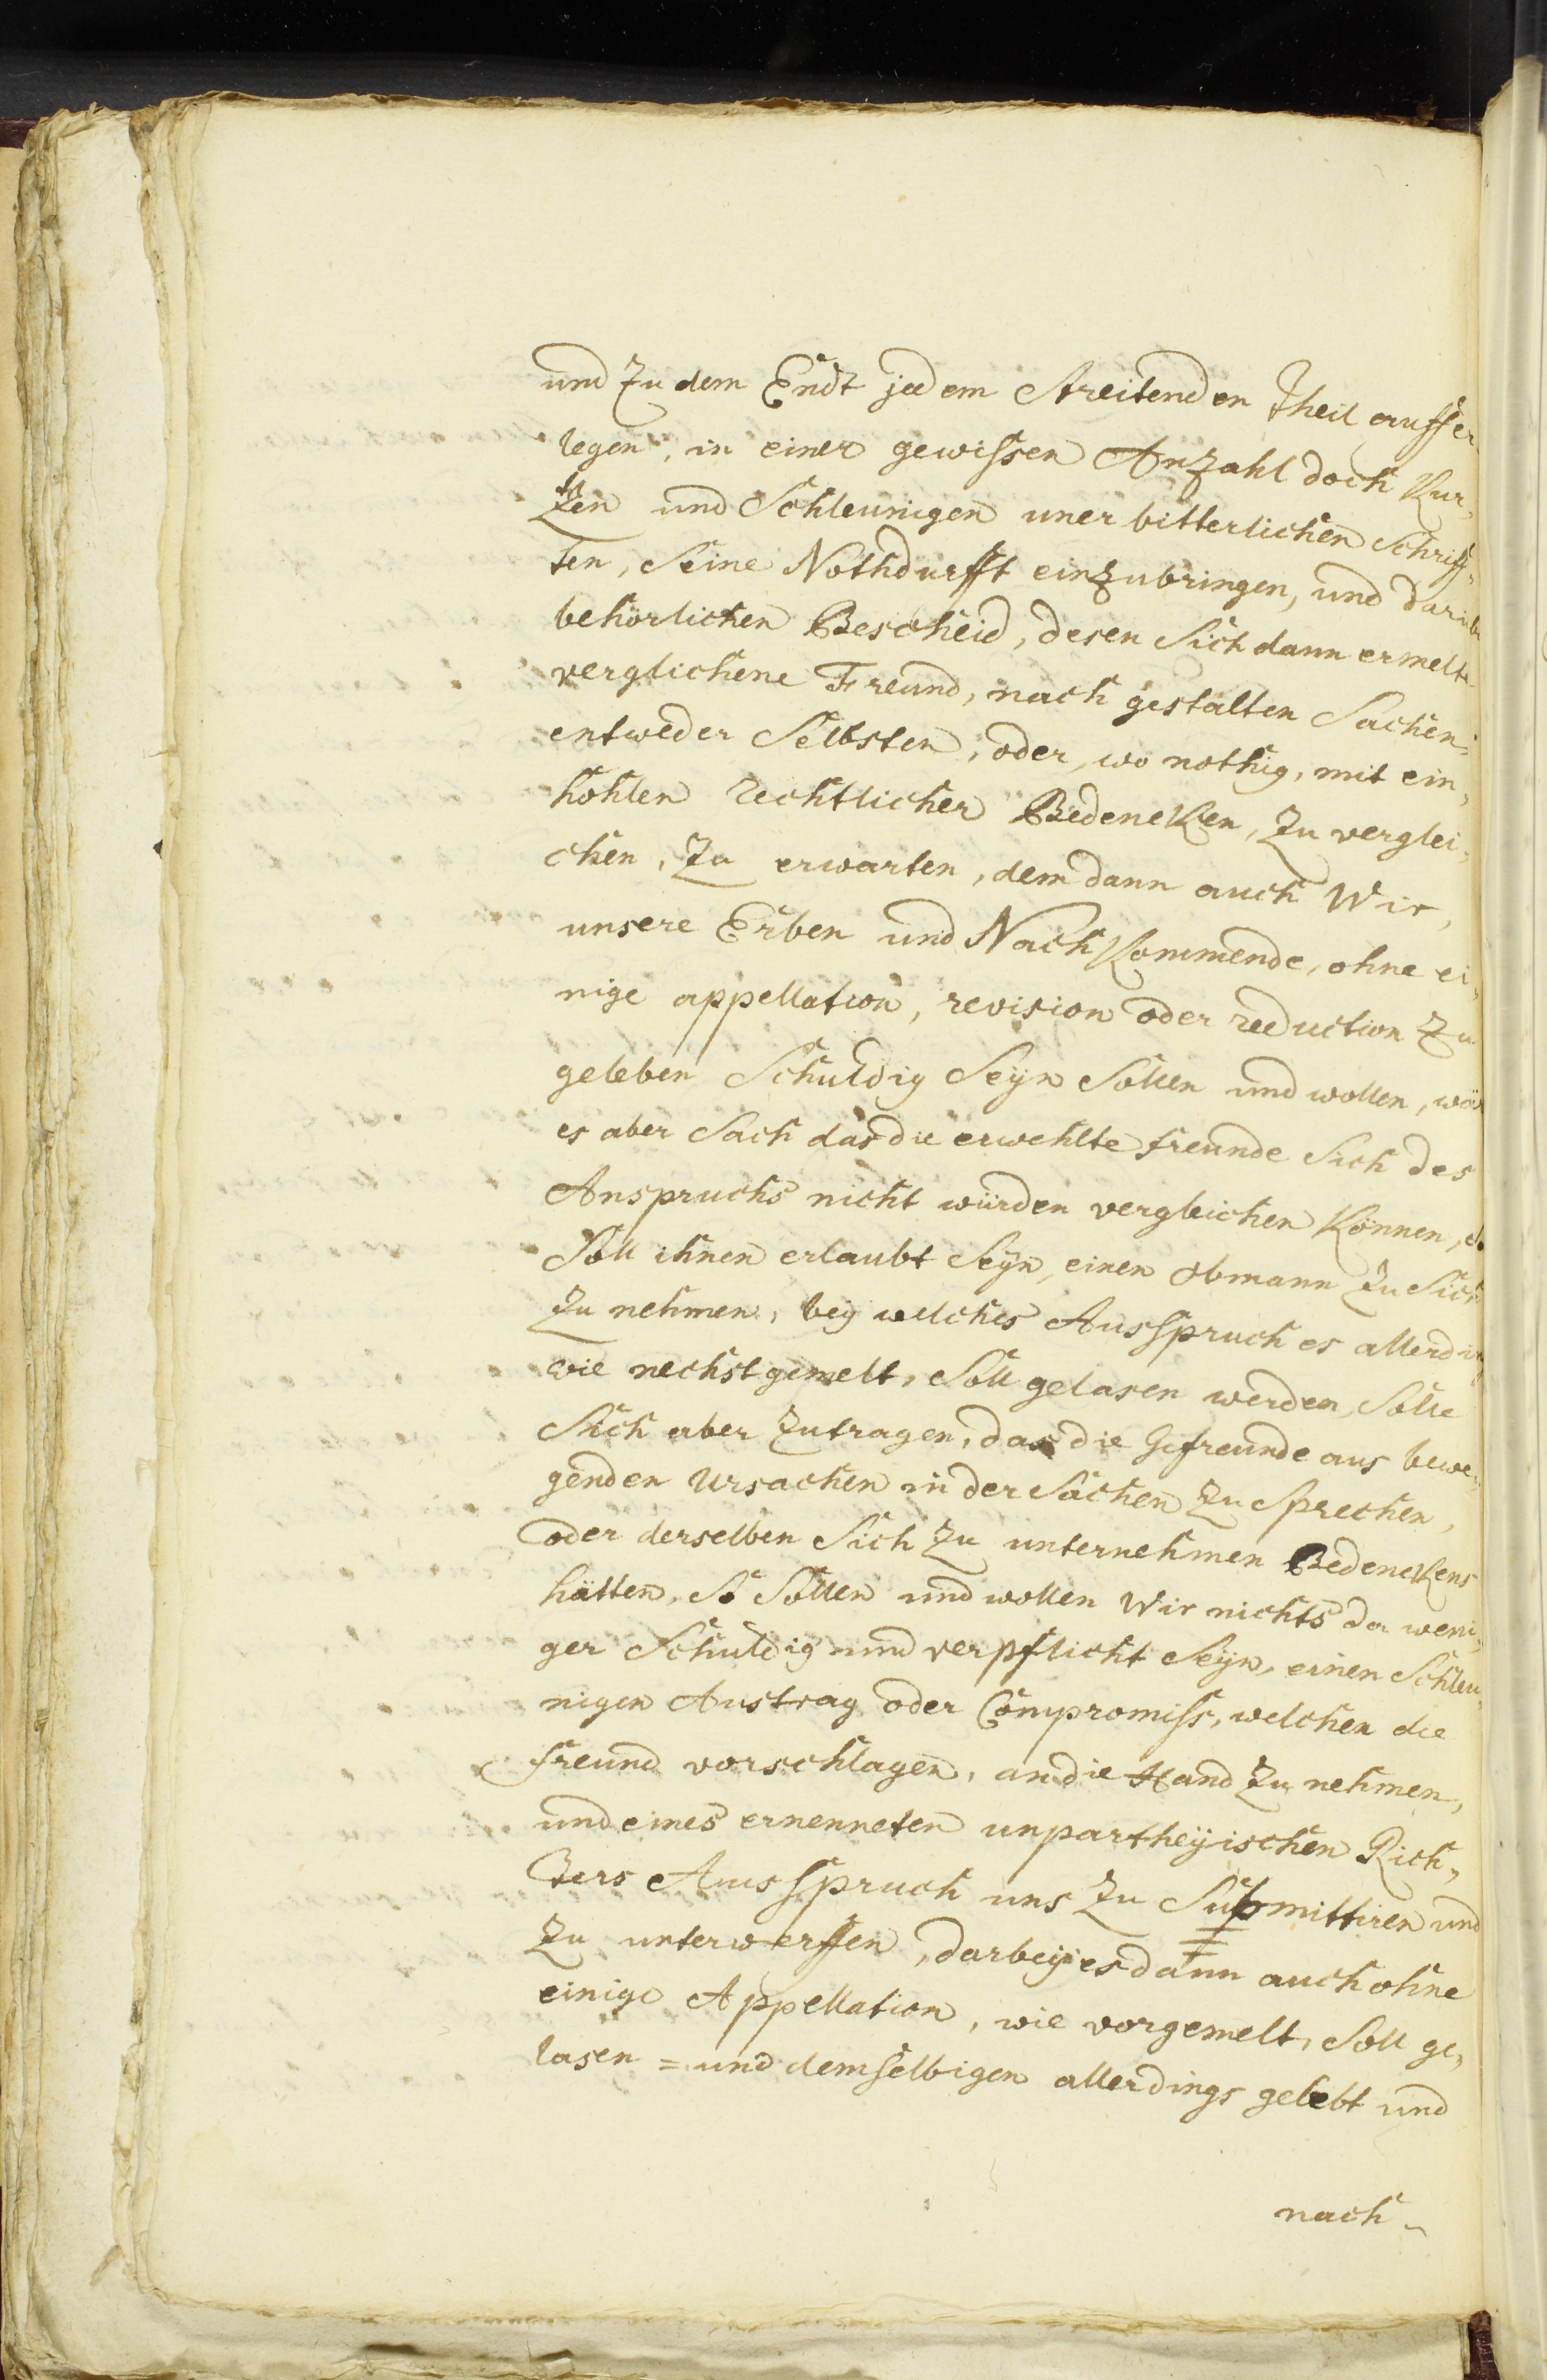 und zu dem Endt jedem streitenden Theil auffer
legen, in einer gewissen Anzahl doch Kur,
tzen und Schleunigen unerbitterlichen Schriff,
ten, Seine Nothdurfft einzubringen, und darüb
behörlichen Bescheid, desen Sich dann ermelte
verglichene Freund, nach gestalten Sachen,
entweder Selbsten, oder, wo nothig, mit ein,
hohlen rechtlicher Bedencken, zu verglei,
chen, zu erwarten, dem dann auch Wir,
unsere Erben und NachKommende, ohne ei,
nige appellation, revision oder reduction zu
geleben Schuldig Seyn Sollen und wollen, wär
es aber Sach das die erwehlte freunde Sich des
Anspruchs nicht würden vergleichen Können, so
Soll ihnen erlaubt Seyn, einen obmann zu Sich
zu nehmen, bey welches Ausspruch es allerding
wie nechst gemelt, Soll gelasen werden, Solle
Sich aber zutragen, das die Gefreunde aus bewe,
genden Ursachen in der Sachen zu Sprechen,
oder derselben Sich zu unternehmen Bedenckens
hätten, So Sollen und wollen Wir nichts da weni,
ger Schuldig und verpflicht Seyn, einen Schleu,
nigen Austrag oder Compromiss, welchen die
freund vorschlagen, an die Hand zu nehmen,
und eines ernenneten unpartheyischen Rich,
ters Ausspruch uns zu Submittiren und
zu unterwerffen, darbey es dann auch ohne
einige Appellation, wie vorgemelt, Soll ge,
lasen = und demselbigen allerdings gelebt und
nach